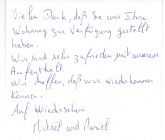 Vielen Dank, daß Sie uns Ihre
Wohnung zur Verfügung gestellt
haben.
Wir sind sehr zufrieden mit unserem
Aufenthalt.
Wir hoffen, daß wir wiederkommen
können.
Auf Wiedersehen
Mickaël und Muriel